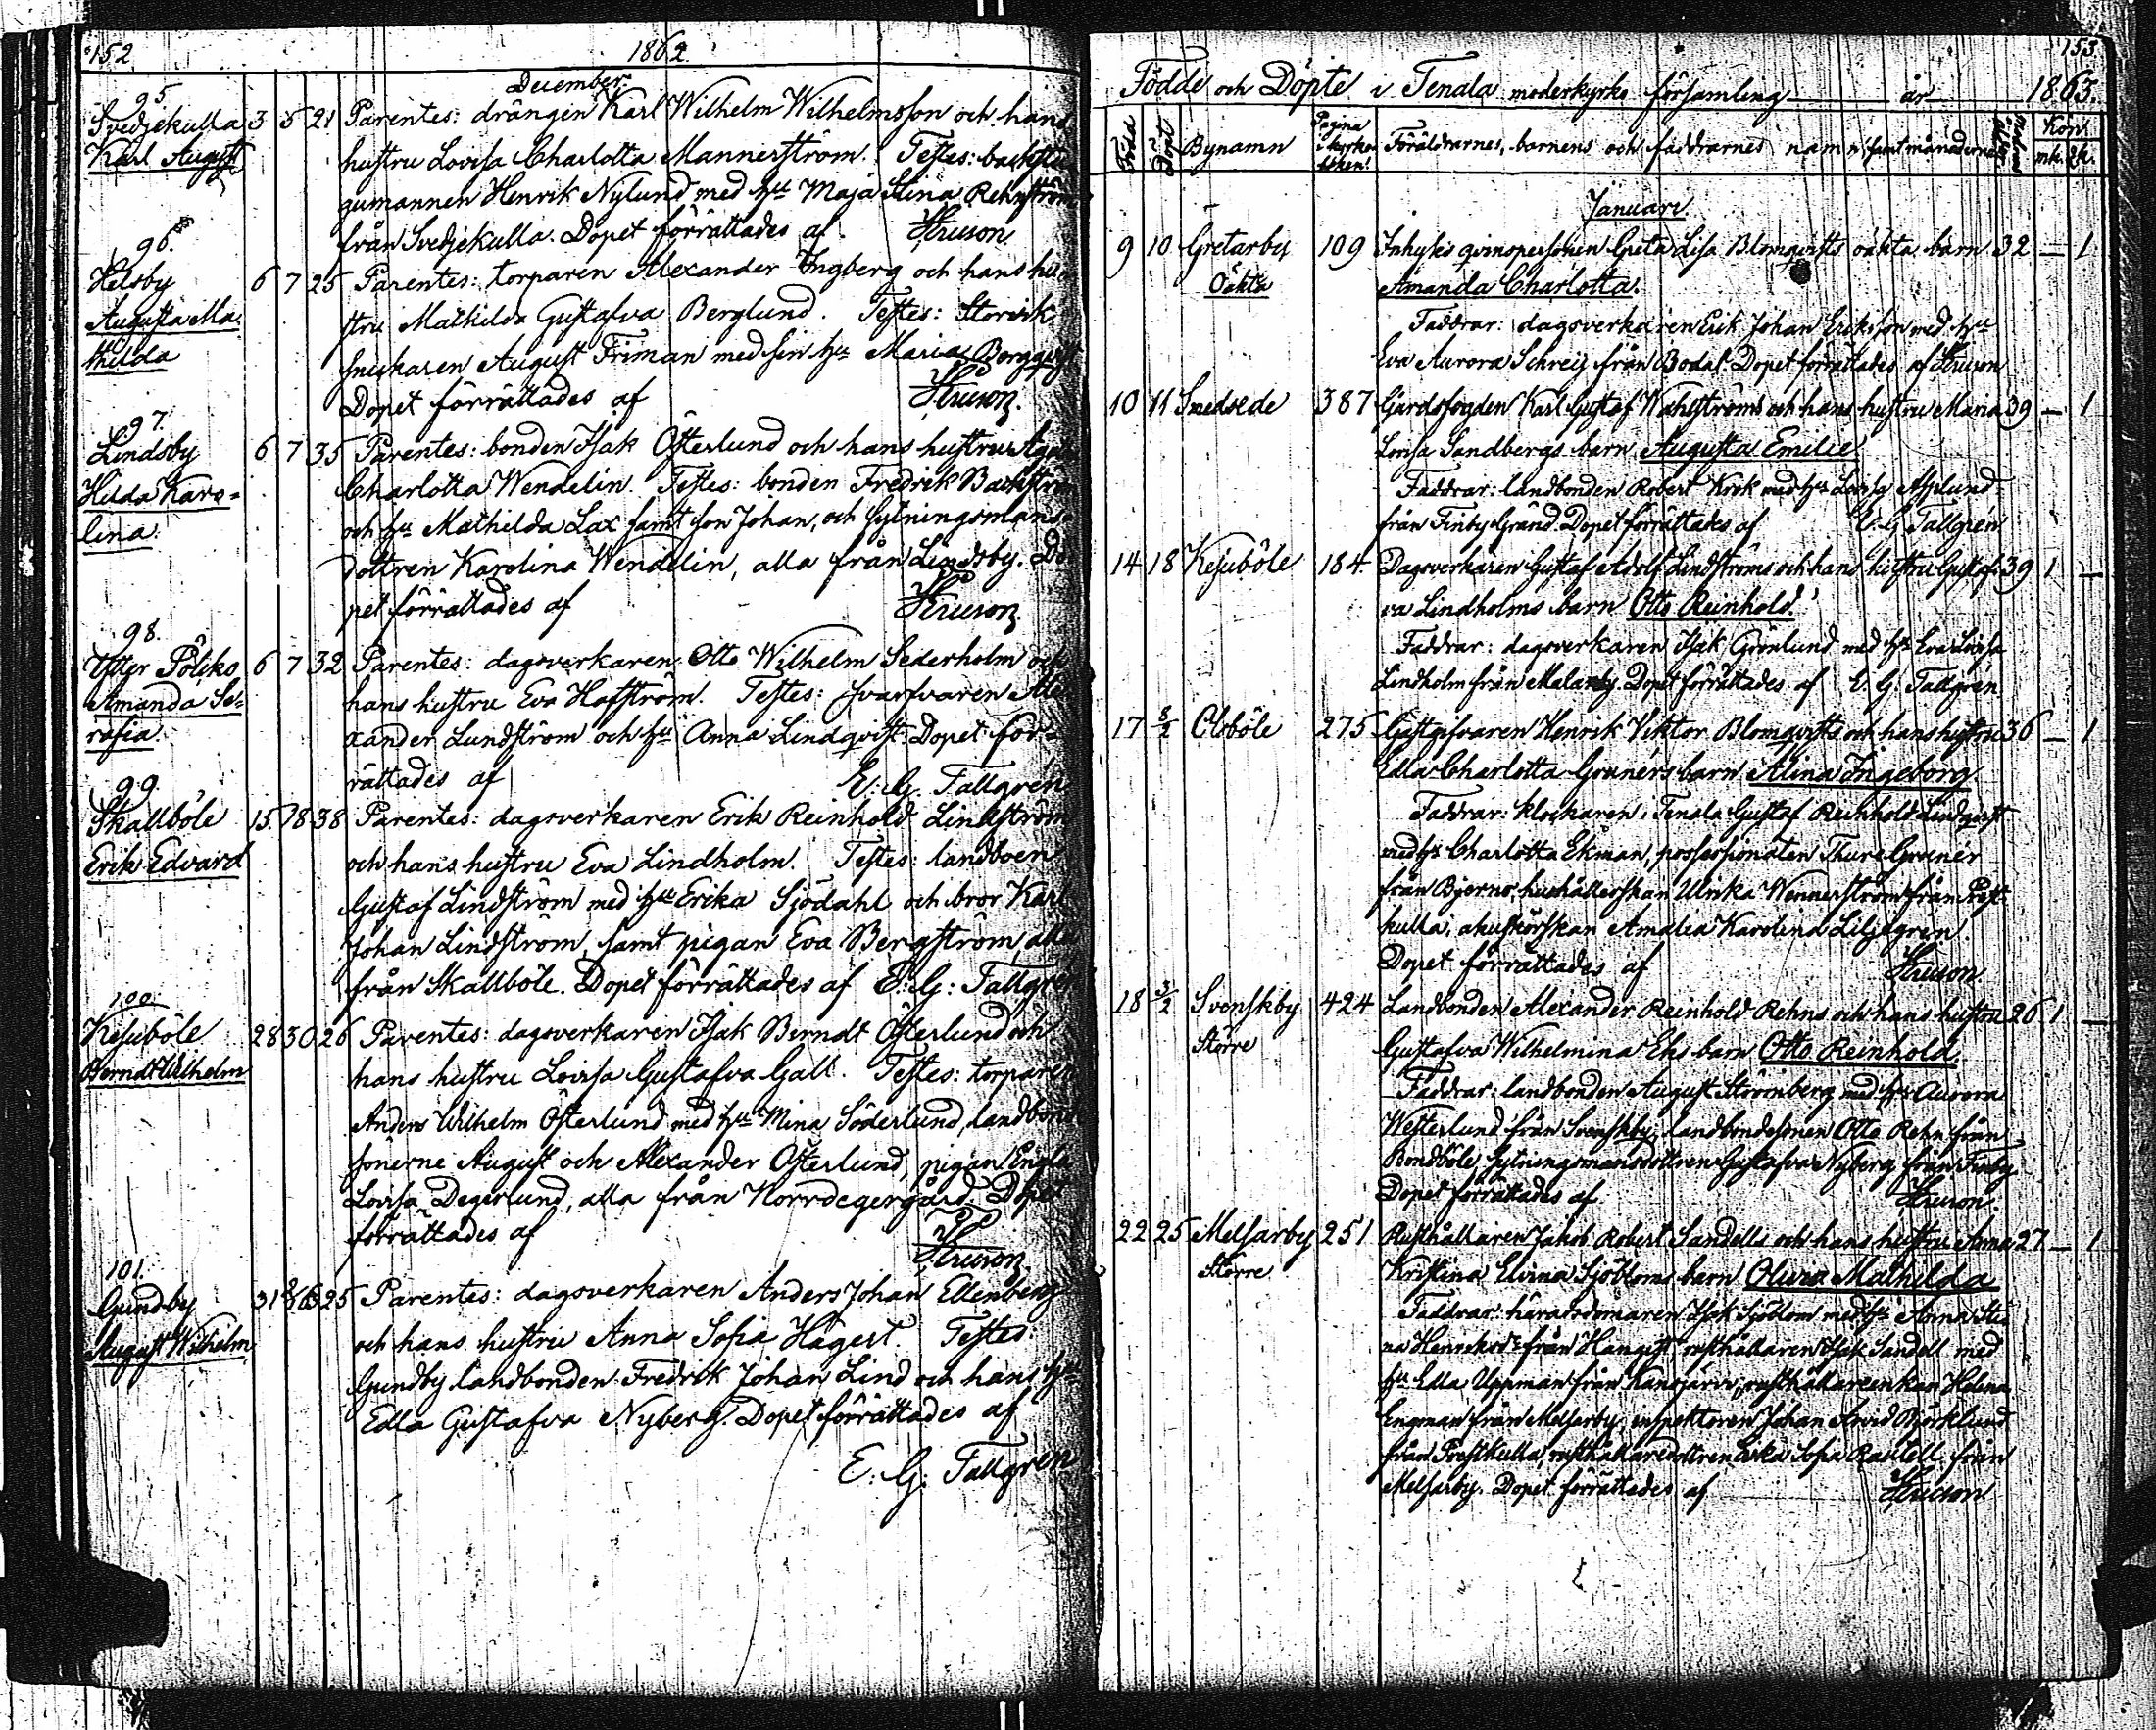 152
1862.
December.
95.
Svedjekulla 3 5 21 Parentes: drängen Karl Wilhelm Wilhelmsson och hans
Karl August hustru Lovisa Charlotta Mannerström. Testes: backstu
gumannen Henrik Nylund med hu Maja Stina Rehnström
från Svedjekulla. Dopet förrättades af
96.
Helsby 6 7 25 Parentes: torparen Alexander Engberg och hans hu
Augusta Ma- stru Mathilda Gustafva Berglund. Testes: Storvik
thilda snickaren August Friman med sin hu Maria Bergqvist
Dopet förrättades af
97.
Lindsby 6 7 35 Parentes: bonden Isak Österlund och hans hustru
Hilda Karo= Charlotta Wendelin. Testes: bonden Fredrik Backström
lina och hu Mathilda Lax samt son Johan, och sytningsmans-
dottren Karolina Wendelin, alla från Lindsby. Do
pet förrättades af
98.
Ytter Pölsko 6 7 32 Parentes: dagsverkaren Otto Wilhelm Sederholm och
Amanda Se= hans hustru Eva Hofström. Testes: svarfvaren Ale
rafia. xander Lundström och hu Anna Lindqvist. Dopet för-
rättades af E. G. Tallgren
99.
Skallböle 15 18 38 Parentes: dagsverkaren Erik Reinhold Lindström
Erik Edvard och hans hustru Eva Lindholm. Testes: landboen
Gustaf Lindström med hu Erika Sjödahl och bror Karl
Johan Lindström, samt pigan Eva Bergström, alla
från Skallböle. Dopet förrättades af E. G. Tallgren
100.
Kesuböle 28 30 26 Parentes: dagsverkaren Isak Berndt Österlund och
Berndt Wilhelm hans hustru Lovisa Gustafva Gall. Testes: torparen
Anders Wilhelm Österlund med hu Mina Söderlund, landbonde
sönerne August och Alexander Österlund, pigan Engla
Lovisa Degerlund, alla från Norrdegergård. Dopet
förrättades af
101.
Gundby 31 25 Parentes: dagsverkaren Anders Johan Ellenberg
August Wilhelm och hans hustru Anna Sofia Hägert. Testes:
Gundby landbonden Fredrik Johan Lind och hans hu
Edla Gustafva Nyberg. Dopet förrättades af
E. G. Tallgren
153
Födde och Döpte i Tenala moderkyrko församling år 1863.
Född Döpt Bynamn Pagina i kyrko boken Föräldrarnes, barnens och faddrarnes namn, samt månaderna Kön. mk. qk.
Januari.
9 10 Gretarby 109 Inhyses qvinspersonen Greta Lisa Blomqvists oäkta barn 32 — 1
Oäkta Amanda Charlotta.
Faddrar: dagsverkaren Erik Johan Eriksson med hu
Eva Aurora Schreij från Bodal. Dopet förrättades af
10 11 Smedsede 387 Gårdsfogden Karl Gustaf Wahlströms och hans hustru Maria 39 — 1
Lovisa Sandbergs barn Augusta Emilie
Faddrar: landbonden Robert Krok med hu Lovisa Asplund
från Finby Gränd. Dopet förrättades af E. G. Tallgren
14 18 Kesuböle 184 Dagsverkaren Gustaf Adolf Lindströms och hans hustru Gustaf- 39 1 —
va Lindholms barn Otto Reinhold.
Faddrar: dagsverkaren Isak Grönlund med hu Eva Lovisa
Lindholm från Malarby. Dopet förrättades af E. G. Tallgren
17 8/2 Olsböle 275 Gästgifvaren Henrik Viktor Blomqvists och hans hustru 36 — 1
Edla Charlotta Gruners barn Alina Ingeborg.
Faddrar: klockaren i Tenala Gustaf Reinhold Lindqvist
med hu Charlotta Ekman, possessionaten Thure Gruner
från Bjerno, hushållerskan Ulrika Wennerström från Prest-
kulla, akuschörskan Amalia Karolina Liljegren.
Dopet förrättades af
18 3/2 Svenskby 424 Landbonden Alexander Reinhold Rehns och hans hustru 26 1 —
Större Gustafva Wilhelmina Eks barn Otto Reinhold.
Faddrar: landbonden August Strömberg med hu Aurora
Westerlund från Svenskby, landbondesonen Otto Rehn från
Bondböle, sytningsmansdottren Gustafva Nyberg från Finby
Dopet förrättades af
22 25 Melsarby 251 Rusthållaren Jakob Robert Sandells och hans hustru Anna 27 — 1
Större Kristina Elvina Sjöbloms barn Olivia Mathilda
Faddrar: häradsdomaren Isak Sjöblom med hu Anna Sti-
na Henriksdr från Hangist, rusthållaren Isak Sandell med
hu Edla Uppman från Kansjärvi, rusthållareenkan Helena
Engman från Melsarby, inspektoren Johan Arvid Björklund
från Prestkulla, rusthållaredottren Erika Sofia Rantell från
Melsarby. Dopet förrättades af